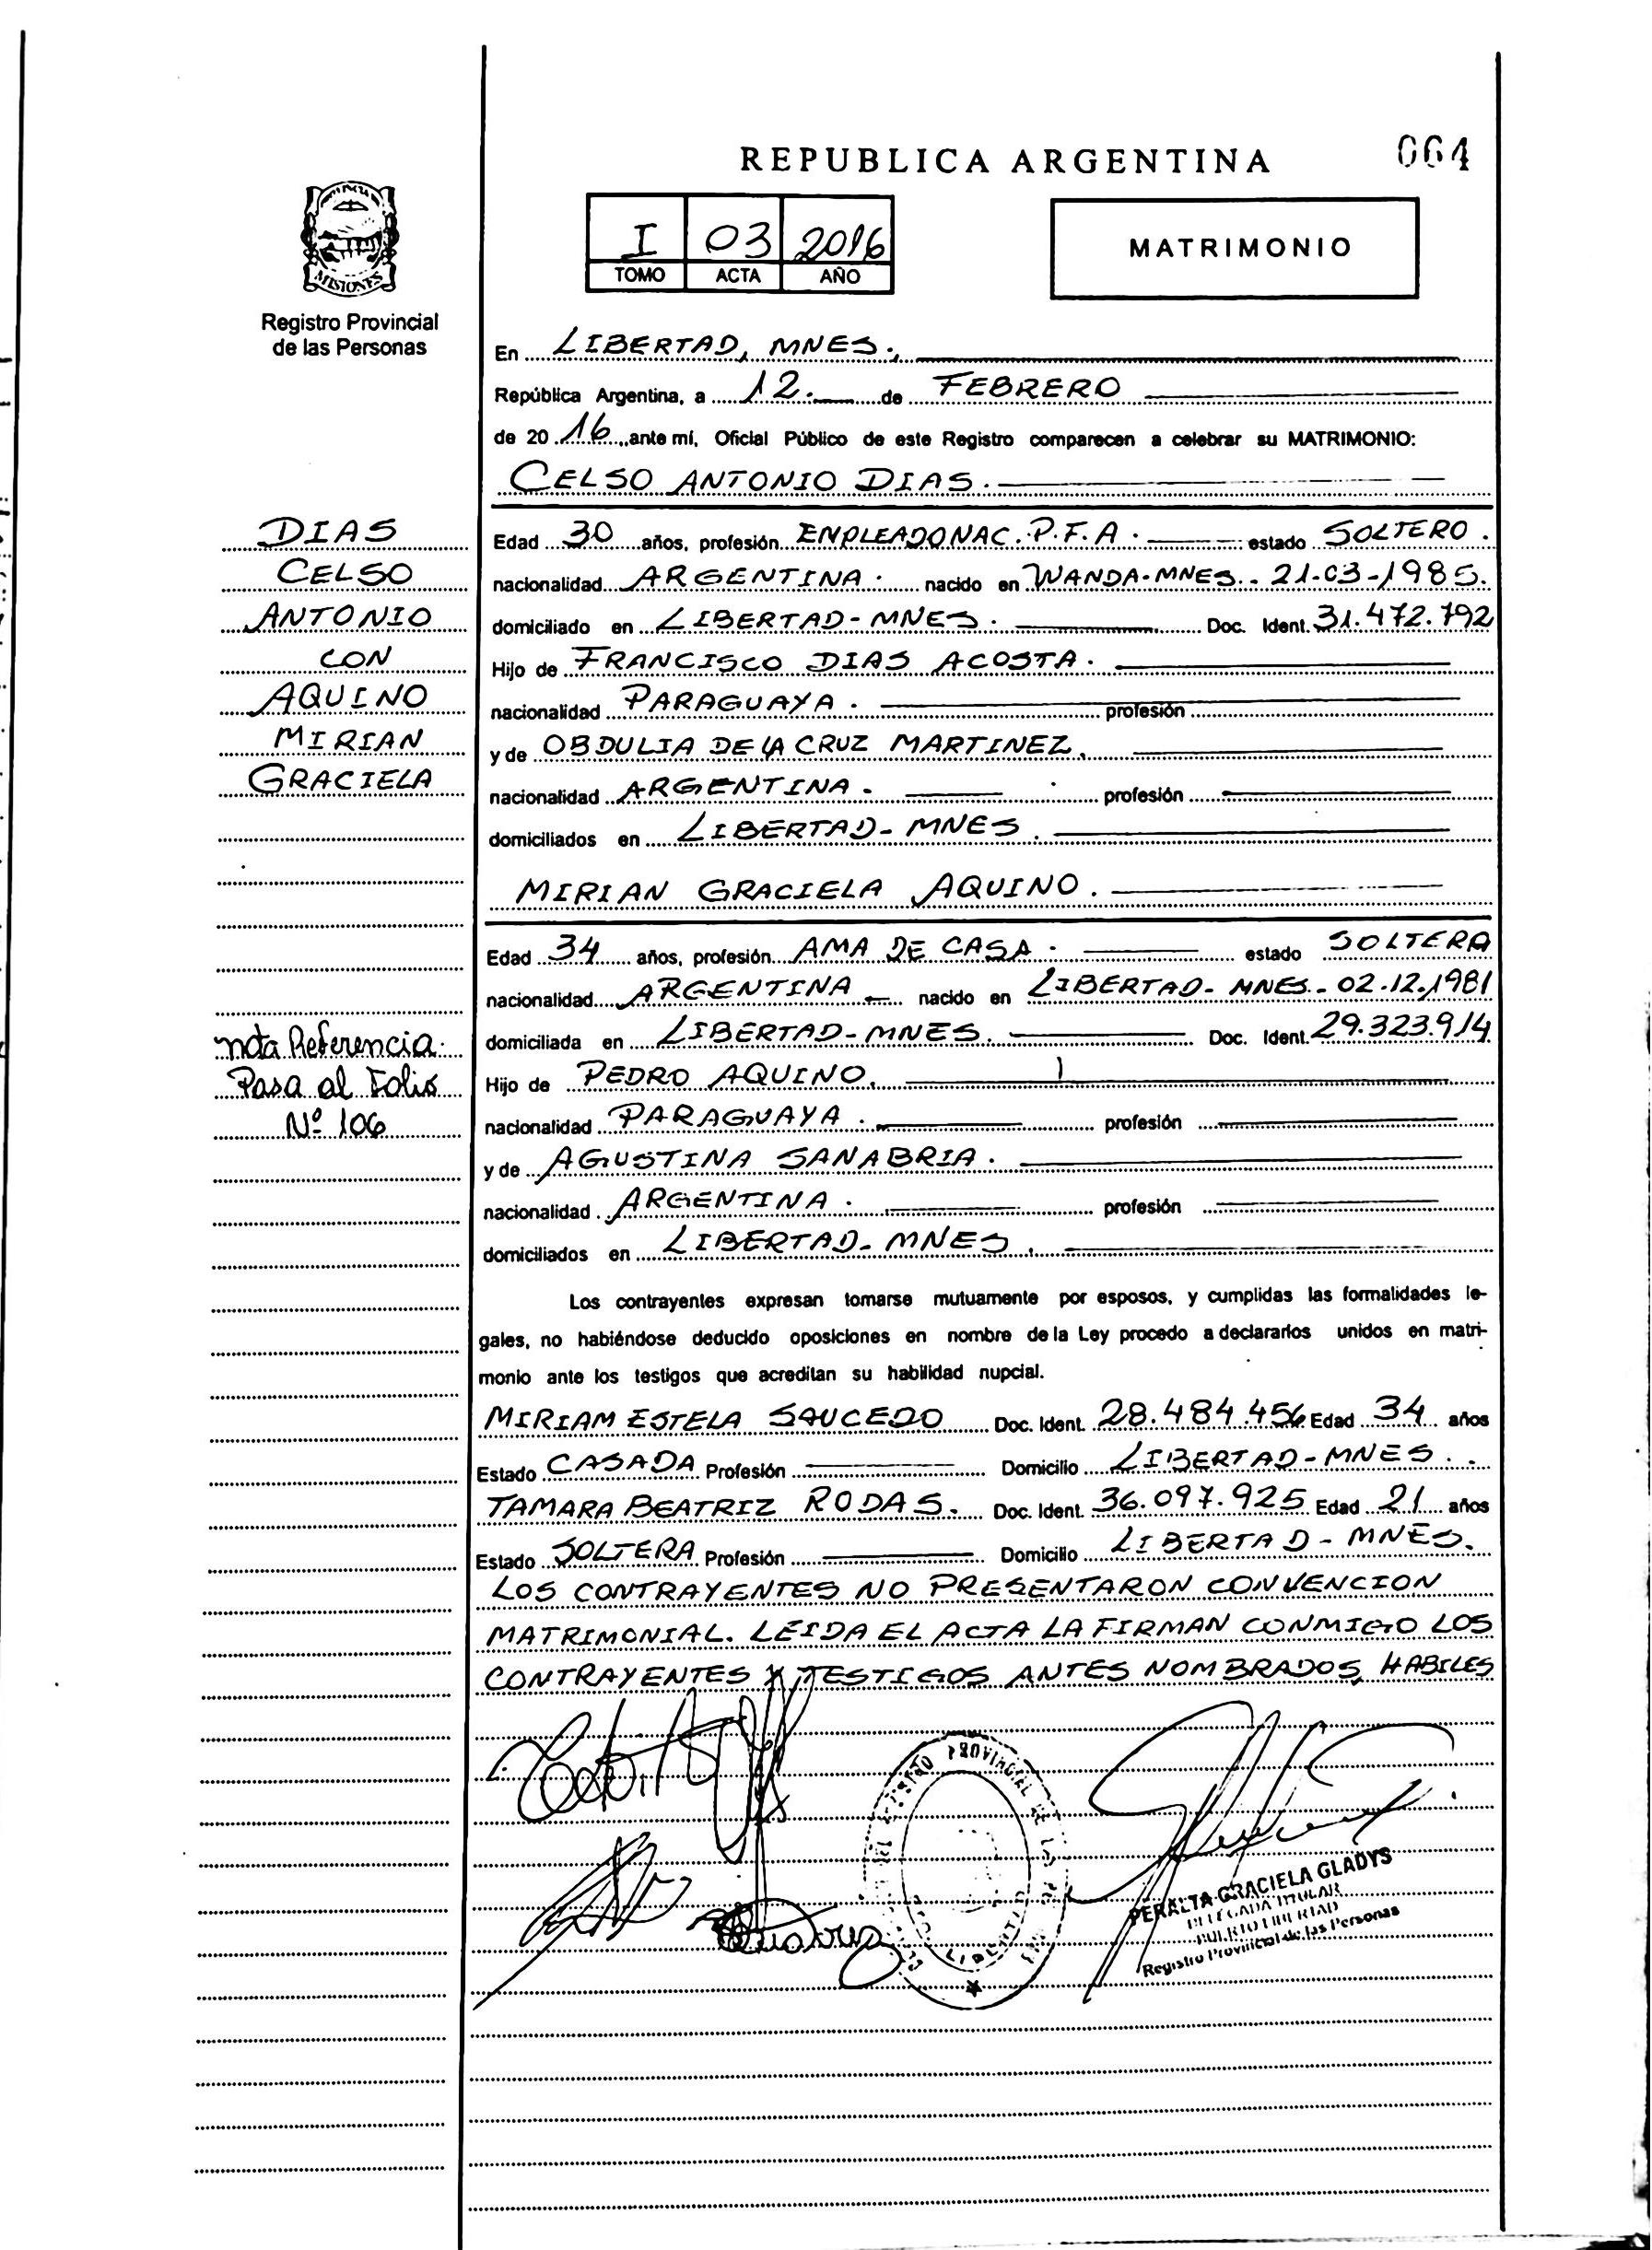 REPUBLICA ARGENTINA
064
MISIONES
Registro Provincial
de las Personas
I 03 2016
TOMO ACTA AÑO
MATRIMONIO
En LIBERTAD, MNES.,
República Argentina, a 12. de FEBRERO
de 20 16 ante mí, Oficial Público de este Registro comparecen a celebrar su MATRIMONIO:
CELSO ANTONIO DIAS.
DIAS
CELSO
ANTONIO
CON
AQUINO
MIRIAN
GRACIELA
Edad 30 años, profesión ENPLEADO NAC. P.F.A. estado SOLTERO.
nacionalidad ARGENTINA. nacido en WANDA-MNES.- 21-03-1985.
domiciliado en LIBERTAD-MNES. Doc. Ident. 31.472.792
Hijo de FRANCISCO DIAS ACOSTA.
nacionalidad PARAGUAYA. profesión
y de OBDULIA DE LA CRUZ MARTINEZ.
nacionalidad ARGENTINA. profesión
domiciliados en LIBERTAD-MNES.
MIRIAN GRACIELA AQUINO.
Edad 34 años, profesión AMA DE CASA. estado SOLTERA
nacionalidad ARGENTINA nacido en LIBERTAD-MNES-02.12.1981
domiciliada en LIBERTAD-MNES. Doc. Ident. 29.323.914
Hijo de PEDRO AQUINO.
nacionalidad PARAGUAYA. profesión
y de AGUSTINA SANABRIA.
nacionalidad ARGENTINA. profesión
domiciliados en LIBERTAD-MNES.
nota Referencia.
Pasa al Folio
Nº 106
Los contrayentes expresan tomarse mutuamente por esposos, y cumplidas las formalidades le-
gales, no habiéndose deducido oposiciones en nombre de la Ley procedo a declararlos unidos en matri-
monio ante los testigos que acreditan su habilidad nupcial.
MIRIAM ESTELA SAUCEDO Doc. Ident. 28.484.456 Edad 34 años
Estado CASADA Profesión Domicilio LIBERTAD-MNES.
TAMARA BEATRIZ RODAS. Doc. Ident. 36.097.925 Edad 21 años
Estado SOLTERA Profesión Domicilio LIBERTAD-MNES.
LOS CONTRAYENTES NO PRESENTARON CONVENCION
MATRIMONIAL. LEIDA EL ACTA LA FIRMAN CONMIGO LOS
CONTRAYENTES Y TESTIGOS ANTES NOMBRADOS, HABILES
PROVINCIAL DE
PERALTA GRACIELA GLADYS
DELEGADA TITULAR
PUERTO LIBERTAD
Registro Provincial de las Personas